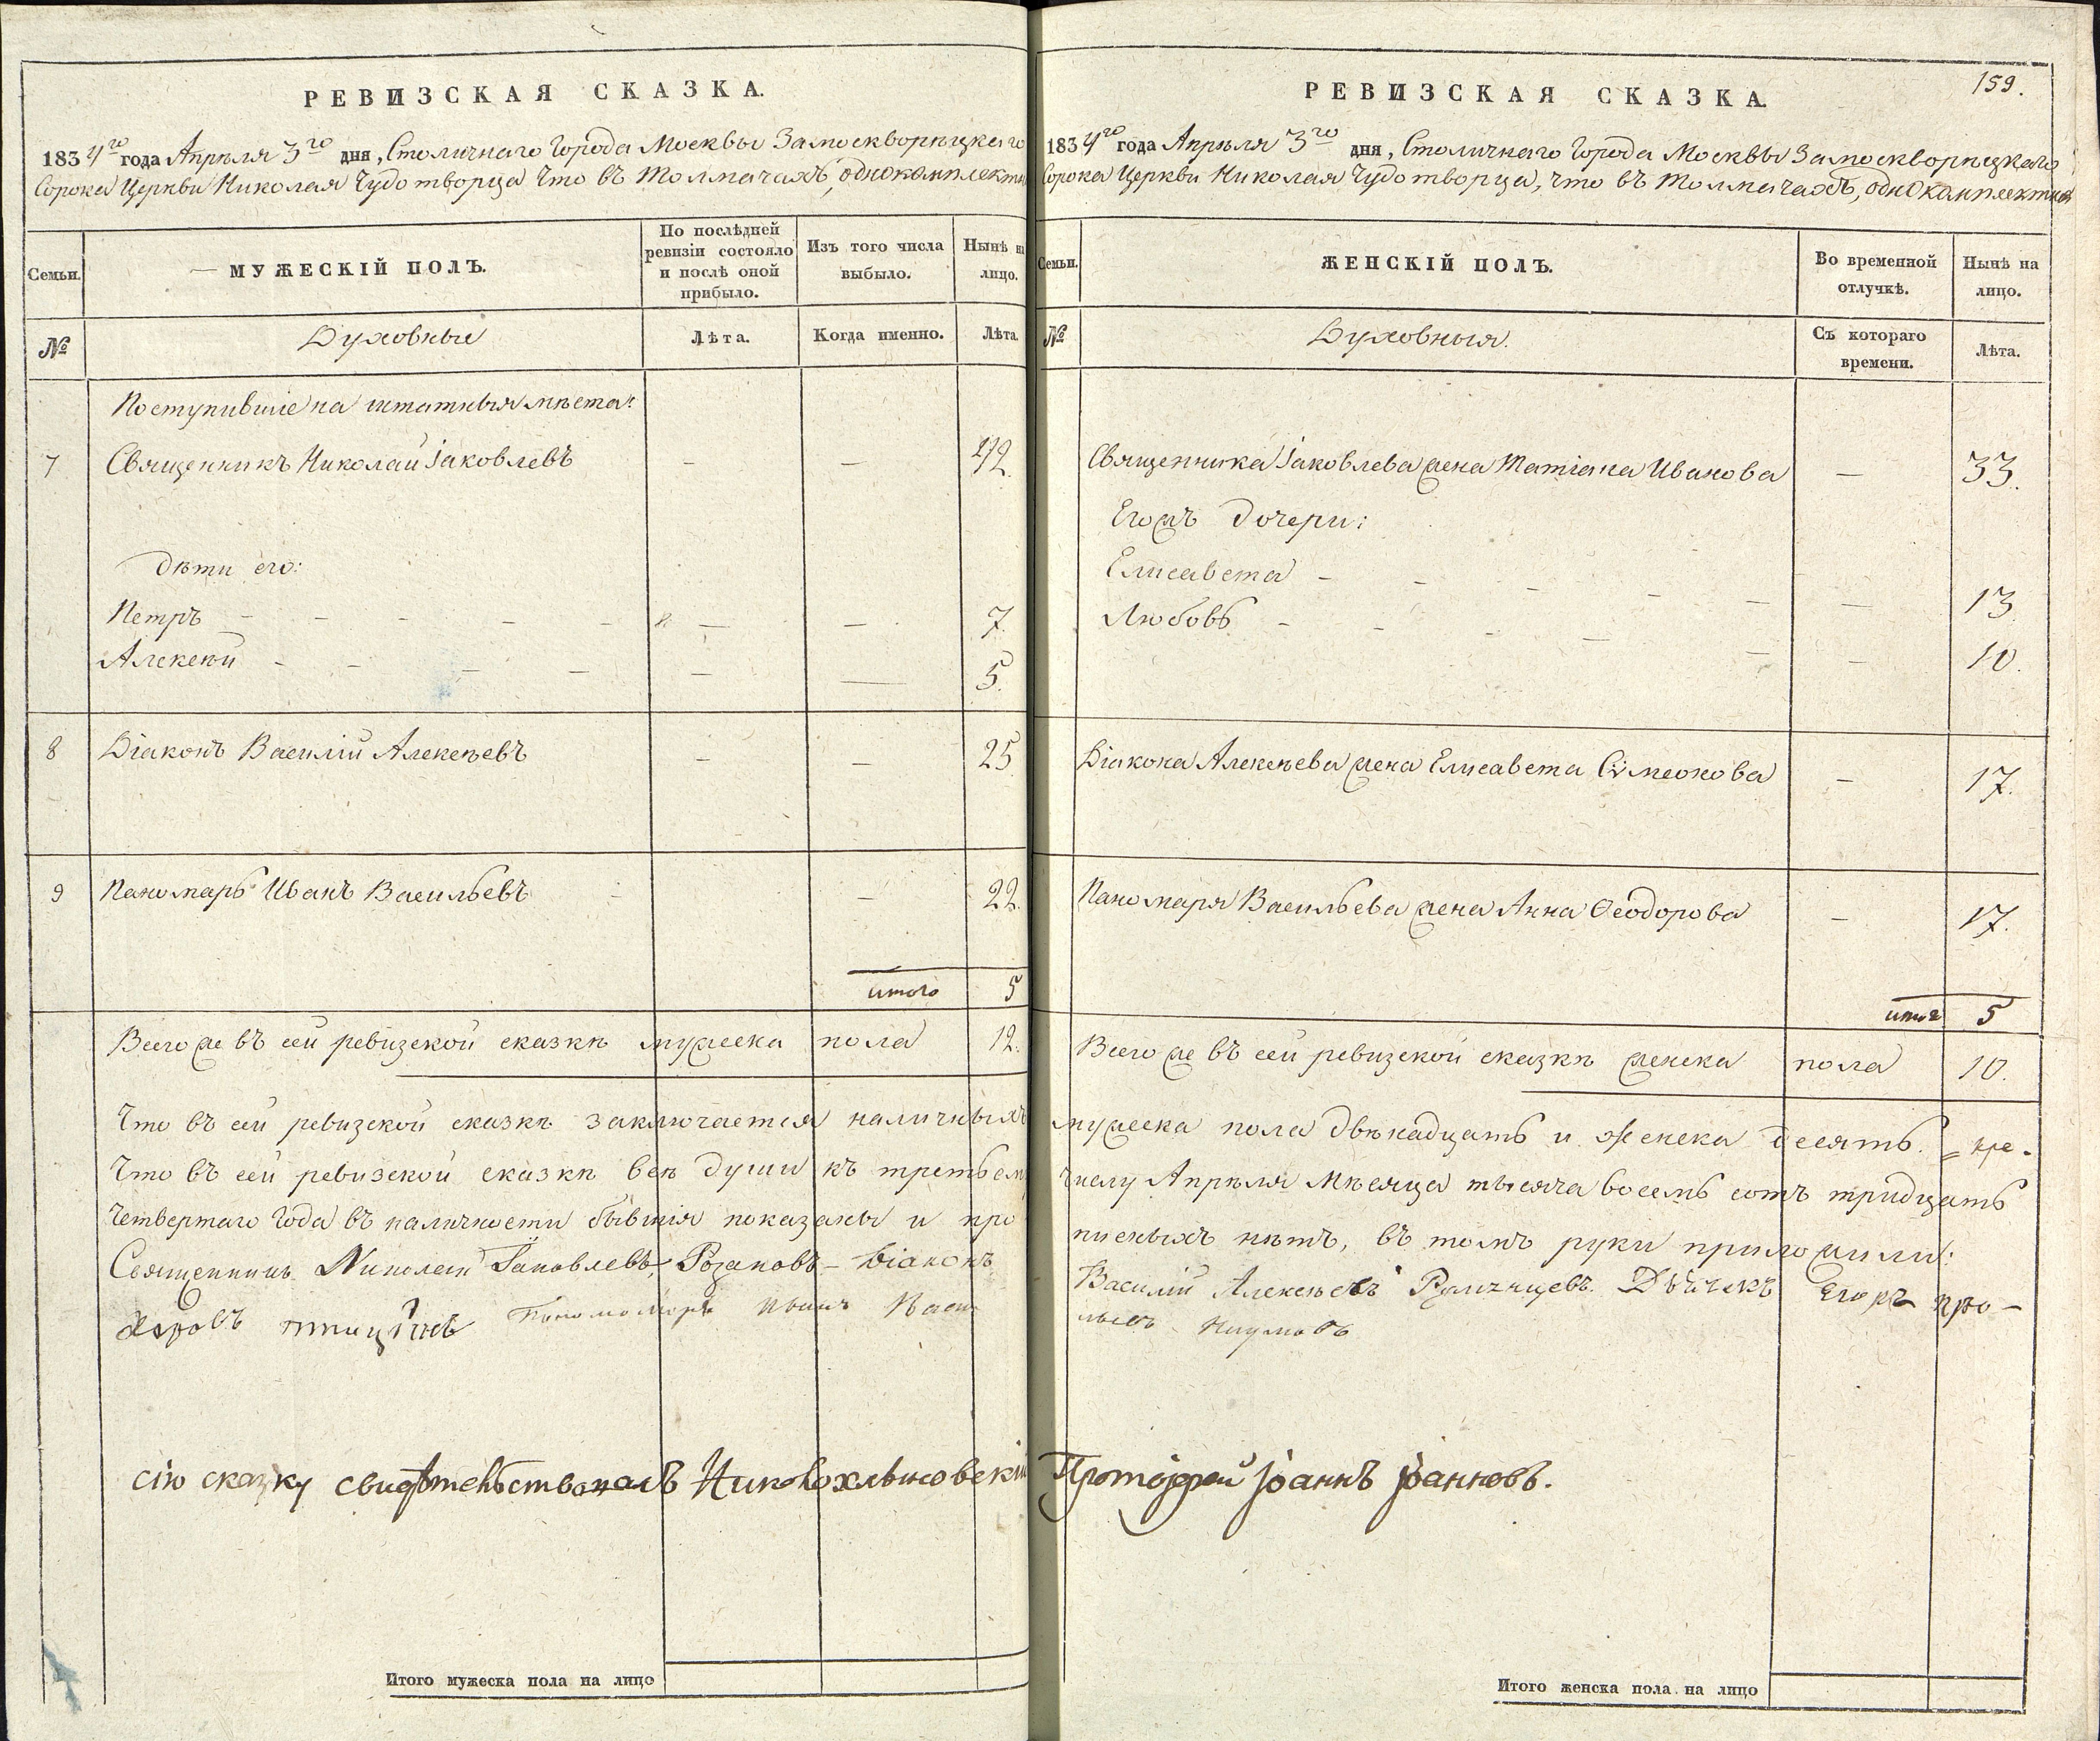 РЕВИЗСКАЯ СКАЗКА.
1834го года Апрѣля 3го дня, Столичнаго Города Москвы Замоскворѣцкаго
Сорока Церкви Николая Чудотворца что въ Толмачахъ, однокомплектн
Семьи.
МУЖЕСКІЙ ПОЛЪ.
По послѣдней ревизіи состояло и послѣ оной прибыло.
Изъ того числа выбыло.
Нынѣ на лицо.
№
Духовные
Лѣта.
Когда именно.
Лѣта.
Поступившіе на штатныя мѣста:
7 Священникъ Николай Іаковлевъ — — 42.
Дѣти его:
Петръ — — 7.
Алексѣй — — 5.
8 Діаконъ Василій Алексѣевъ — — 25.
9 Пономарь Иванъ Васильевъ — — 22.
итого 5
Всего же въ сей ревизской сказкѣ мужеска пола 12.
Что въ сей ревизской сказкѣ заключается наличныхъ
Что въ сей ревизской сказкѣ всѣ души къ третьему
четвертаго года въ наличности бывшія показаны и про
Священникъ Николай Іаковлевъ Розановъ – Діаконъ
хоровъ птицынъ Пономоморь Иванъ Васи
сію сказку свидѣтельствовалъ Николохлыновскій
Итого мужеска пола на лицо
159.
РЕВИЗСКАЯ СКАЗКА.
1834го года Апрѣля 3го дня, Столичнаго Города Москвы Замоскворѣцкаго
Сорока Церкви Николая Чудотворца, что въ Толмачахъ, однокомплектной
Семьи.
ЖЕНСКІЙ ПОЛЪ.
Во временной отлучкѣ.
Нынѣ на лицо.
№
Духовныя.
Съ котораго времени.
Лѣта.
Священника Іаковлева жена Татіана Иванова — 33.
Его жъ дочери:
Елисавета — 13
Любовь — 10.
Діакона Алексѣева жена Елисавета Сѵмеонова — 17.
Пономаря Васильева жена Анна Ѳеодорова — 17.
итого 5
Всего же въ сей ревизской сказкѣ женска пола 10.
мужеска пола двѣнадцать и женска десять.
числу Апрѣля мѣсяца тысяча восемь сотъ тридцать
писныхъ нѣтъ, въ томъ руки приложили:
Василій Алексѣевъ Румянцевъ. Дьячекъ Егоръ про–
льевъ Наумовъ
Протоіерей Іоаннъ Іоанновъ.
Итого женска пола на лицо